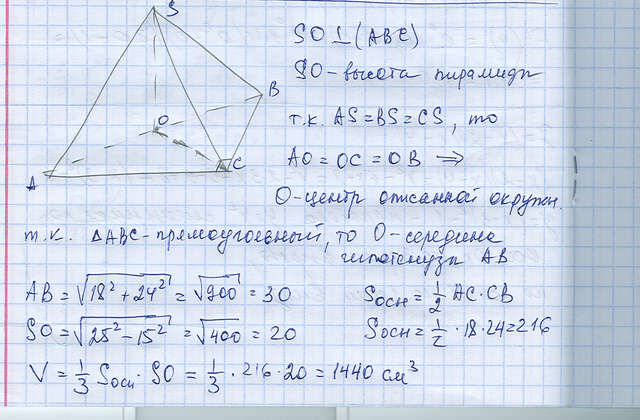 S
B
O
C
A
SO ⊥ (ABC)
SO - высота пирамиды
т.к. AS = BS = CS, то
AO = OC = OB ⇒
O - центр описанной окружн.
т.к. ΔABC - прямоугольный, то O - середина
гипотенузы AB
AB = √(18² + 24²) = √900 = 30
Sосн = 1/2 AC · CB
SO = √(25² - 15²) = √400 = 20
Sосн = 1/2 · 18 · 24 = 216
V = 1/3 Sосн · SO = 1/3 · 216 · 20 = 1440 см³